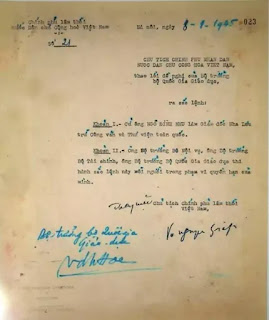 Chính phủ lâm thời
Việt Nam
Số 21
Hà nội, ngày 8-9-1945
023
CHỦ TỊCH CHÍNH PHỦ NHÂN DÂN
NƯỚC DÂN CHỦ CỘNG HOÀ VIỆT NAM,
theo lời đề nghị của Bộ trưởng
Bộ Quốc Gia Giáo dục,
ra sắc lệnh:
Khoản I.- Cử ông NGÔ ĐÌNH NHU làm Giám đốc Nha Lưu
trữ Công văn và Thư viện toàn quốc.
Khoản II.- Ông Bộ trưởng Bộ Nội vụ, ông Bộ trưởng
Bộ Tài chính, ông Bộ trưởng Bộ Quốc Gia Giáo dục thi
hành sắc lệnh này mỗi người trong phạm vi quyền hạn của
mình.
Chủ tịch Chính phủ lâm thời
Việt Nam,
Bộ trưởng bộ Quốc gia
Giáo dục
Vđh Hoe
Võ Nguyên Giáp